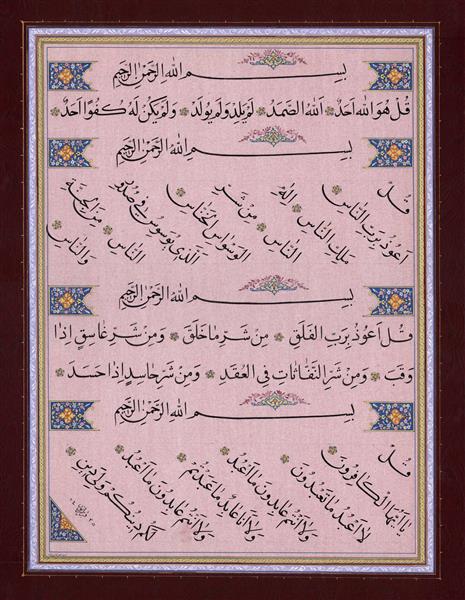 بِسْمِ اللهِ الرَّحْمٰنِ الرَّحِيمِ
قُلْ هُوَ اللهُ اَحَدٌ اَللهُ الصَّمَدُ لَمْ يَلِدْ وَلَمْ يُولَدْ وَلَمْ يَكُنْ لَهُ كُفُوًا اَحَدٌ
بِسْمِ اللهِ الرَّحْمٰنِ الرَّحِيمِ
قُلْ
اَعُوذُ بِرَبِّ النَّاسِ
مَلِكِ النَّاسِ
اِلٰهِ النَّاسِ
مِنْ شَرِّ الْوَسْوَاسِ الْخَنَّاسِ
اَلَّذِي يُوَسْوِسُ فِي صُدُورِ النَّاسِ
مِنَ الْجِنَّةِ وَالنَّاسِ
بِسْمِ اللهِ الرَّحْمٰنِ الرَّحِيمِ
قُلْ اَعُوذُ بِرَبِّ الْفَلَقِ مِنْ شَرِّ مَا خَلَقَ وَمِنْ شَرِّ غَاسِقٍ اِذَا
وَقَبَ وَمِنْ شَرِّ النَّفَّاثَاتِ فِي الْعُقَدِ وَمِنْ شَرِّ حَاسِدٍ اِذَا حَسَدَ
بِسْمِ اللهِ الرَّحْمٰنِ الرَّحِيمِ
قُلْ
يَا اَيُّهَا الْكَافِرُونَ
لَا اَعْبُدُ مَا تَعْبُدُونَ
وَلَا اَنْتُمْ عَابِدُونَ مَا اَعْبُدُ
وَلَا اَنَا عَابِدٌ مَا عَبَدْتُمْ
وَلَا اَنْتُمْ عَابِدُونَ مَا اَعْبُدُ
لَكُمْ دِينُكُمْ وَلِيَ دِينِ